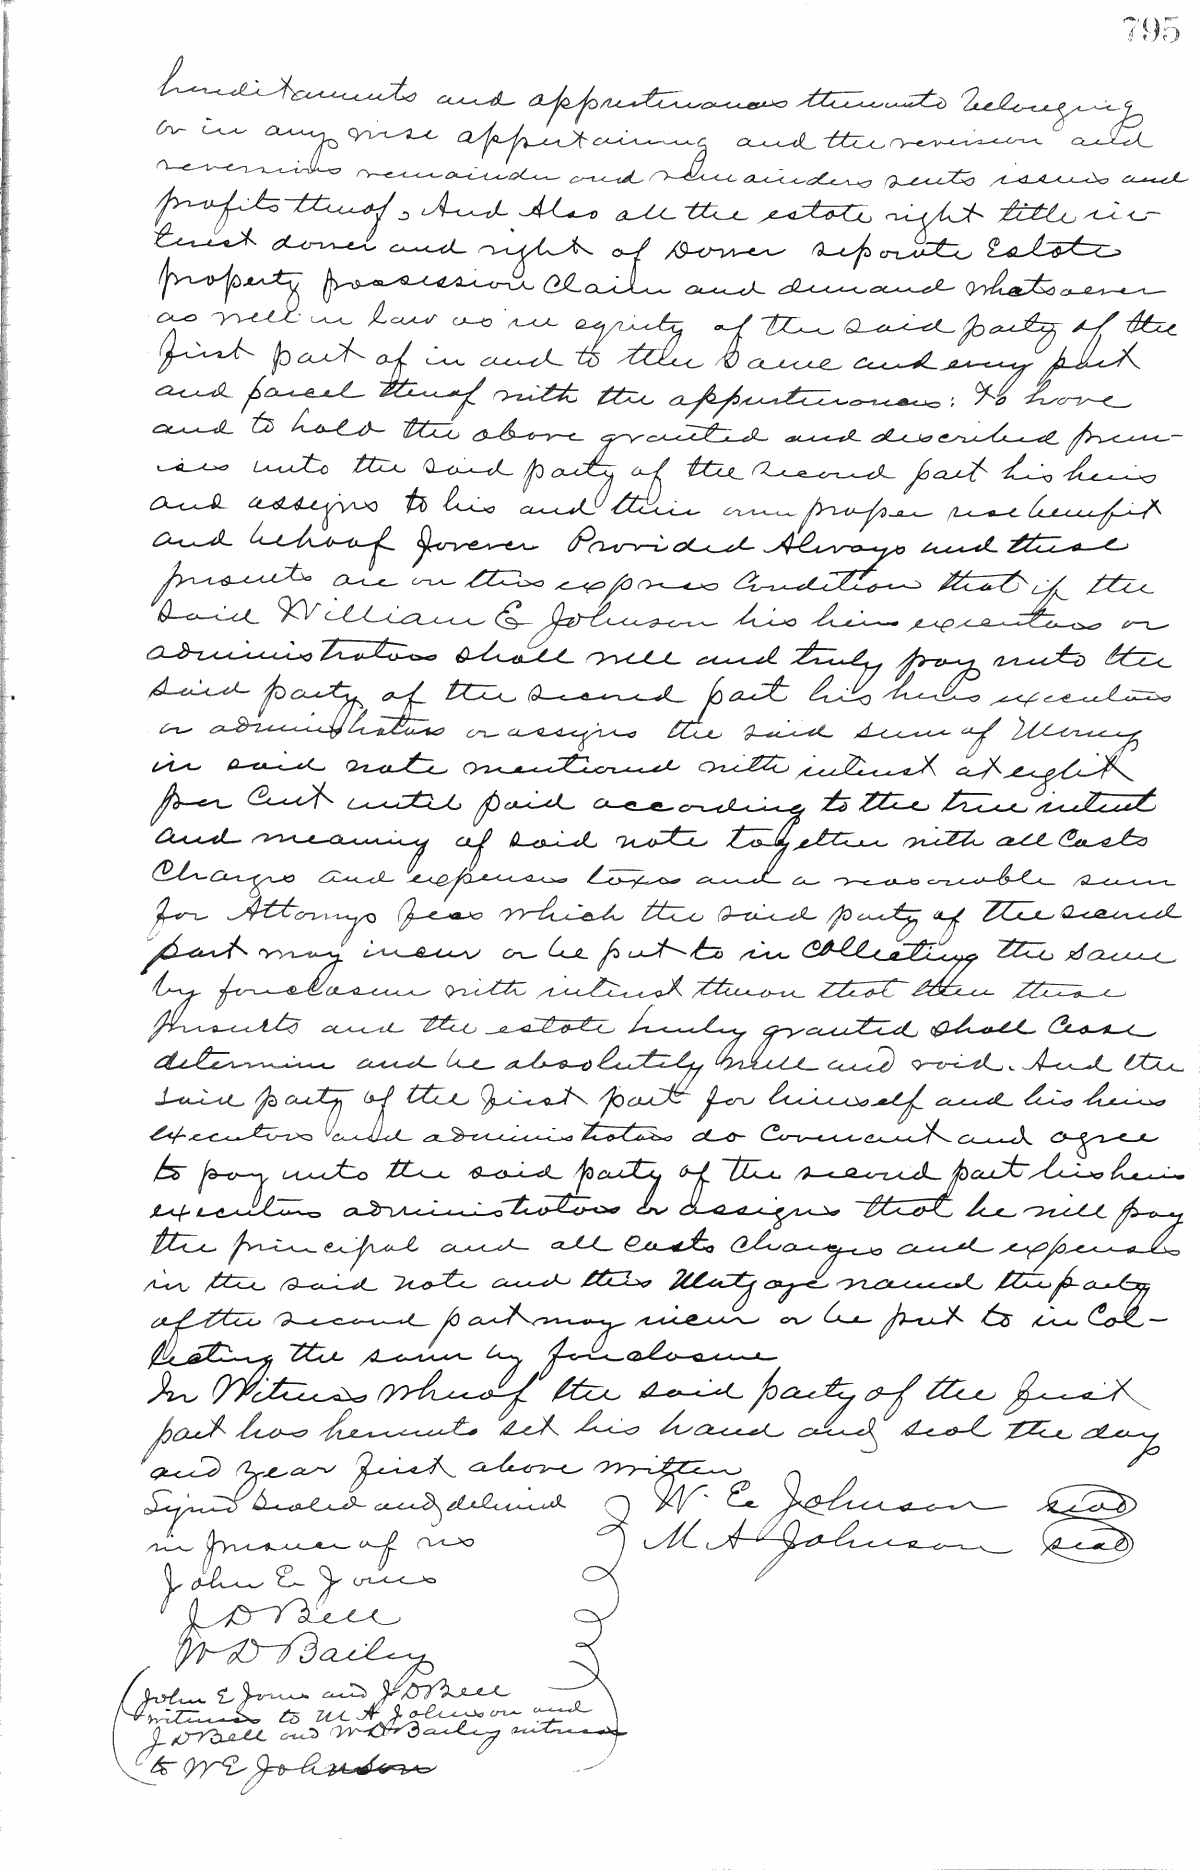 795
hereditaments and appurtenances thereunto belonging
or in any wise appertaining and the reversion and
reversions remainder and remainders rents issues and
profits thereof, And Also all the estate right title in-
terest dower and right of Dower separate Estate
property possession Claim and demand whatsoever
as well in law as in equity of the said party of the
first part of in and to the same and every part
and parcel thereof with the appurtenances: To have
and to hold the above granted and described prem-
ises unto the said party of the second part his heirs
and assigns to his and their own proper use benefit
and behoof forever Provided Always and these
presents are on this express Condition that if the
said William E Johnson his heirs executors or
administrators shall well and truly pay unto the
said party of the second part his heirs executors
or administrators or assigns the said sum of Money
in said note mentioned with interest at eight
per Cent until paid according to the true intent
and meaning of said note together with all Costs
Charges and expenses taxes and a reasonable sum
for Attorneys fees which the said party of the second
part may incur or be put to in Collecting the same
by foreclosure with interest thereon that then these
presents and the estate hereby granted shall Cease
determine and be absolutely null and void. And the
said party of the first part for himself and his heirs
executors and administrators do Covenant and agree
to pay unto the said party of the second part his heirs
executors administrators or assigns that he will pay
the principal and all Costs Charges and expenses
in the said note and this Mortgage named the party
of the second part may incur or be put to in Col-
lecting the same by foreclosure
In Witness Whereof the said party of the first
part has hereunto set his hand and seal the day
and year first above written
Signed Sealed and delivered W. E. Johnson seal
in presence of us M A Johnson seal
John E Jones
J D Bell
W D Bailey
John E Jones and J D Bell
witness to M A Johnson and
J D Bell and W D Bailey witness
to W E Johnson